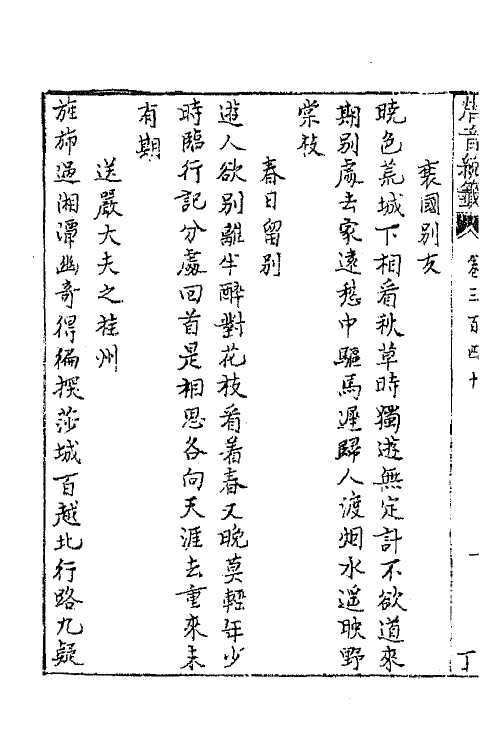 唐音統籤 卷三百四十 一 丁
襄國別友
曉色荒城下相看秋草時獨遊無定計不欲道來
期別處去家遠愁中驅馬遲歸人渡烟水遥映野
棠枝
春日留別
遊人欲別離半醉對花枝看着春又晚莫輕年少
時臨行記分處回首是相思各向天涯去重來未
有期
送嚴大夫之桂州
旌旆過湘潭幽奇得徧探莎城百越北行路九疑